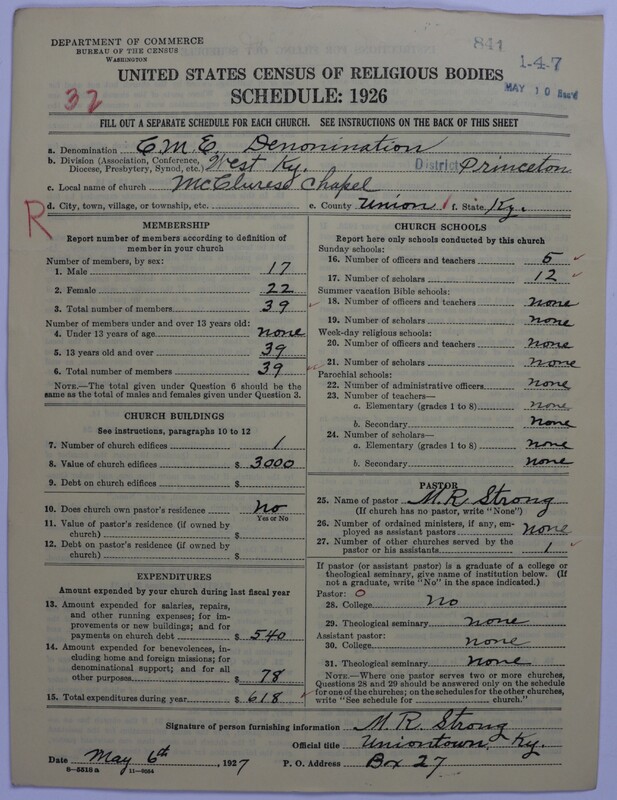 DEPARTMENT OF COMMERCE
BUREAU OF THE CENSUS
WASHINGTON
841
1-4-7
MAY 10
32
UNITED STATES CENSUS OF RELIGIOUS BODIES
SCHEDULE: 1926
FILL OUT A SEPARATE SCHEDULE FOR EACH CHURCH. SEE INSTRUCTIONS ON THE BACK OF THIS SHEET
a. Denomination C.M.E. Denomination
b. Division (Association, Conference, Diocese, Presbytery, Synod, etc.) West Ky. District Princeton
c. Local name of church McClurese Chapel
R
d. City, town, village, or township, etc. e. County Union f. State Ky.
MEMBERSHIP
Report number of members according to definition of
member in your church
Number of members, by sex:
1. Male 17
2. Female 22
3. Total number of members 39
Number of members under and over 13 years old:
4. Under 13 years of age none
5. 13 years old and over 39
6. Total number of members 39
NOTE.—The total given under Question 6 should be
same as the total of males and females given under Question 3.
CHURCH BUILDINGS
See instructions, paragraphs 10 to 12
7. Number of church edifices 1
8. Value of church edifices $ 3000
9. Debt on church edifices $
10. Does church own pastor's residence No
Yes or No
11. Value of pastor's residence (if owned by
church) $
12. Debt on pastor's residence (if owned by
church) $
EXPENDITURES
Amount expended by your church during last fiscal year
13. Amount expended for salaries, repairs,
and other running expenses; for im-
provements or new buildings; and for
payments on church debt $ 540
14. Amount expended for benevolences, in-
cluding home and foreign missions; for
denominational support; and for all
other purposes $ 78
15. Total expenditures during year $ 618
CHURCH SCHOOLS
Report here only schools conducted by this church
Sunday schools:
16. Number of officers and teachers 5
17. Number of scholars 12
Summer vacation Bible schools:
18. Number of officers and teachers none
19. Number of scholars none
Week-day religious schools:
20. Number of officers and teachers none
21. Number of scholars none
Parochial schools:
22. Number of administrative officers none
23. Number of teachers—
a. Elementary (grades 1 to 8) none
b. Secondary none
24. Number of scholars—
a. Elementary (grades 1 to 8) none
b. Secondary none
PASTOR
25. Name of pastor M. R. Strong
(If church has no pastor, write "None")
26. Number of ordained ministers, if any, em-
ployed as assistant pastors none
27. Number of other churches served by the
pastor or his assistants 1
If pastor (or assistant pastor) is a graduate of a college or
theological seminary, give name of institution below. (If
not a graduate, write "No" in the space indicated.)
Pastor: O
28. College No
29. Theological seminary none
Assistant pastor:
30. College none
31. Theological seminary none
NOTE.—Where one pastor serves two or more churches,
Questions 28 and 29 should be answered only on the schedule
for one of the churches; on the schedules for the other churches,
write "See schedule for church."
Signature of person furnishing information M. R. Strong
Official title Uniontown, Ky.
Date May 6th, 1927 P. O. Address Box 27
8-5518 a 11-9054